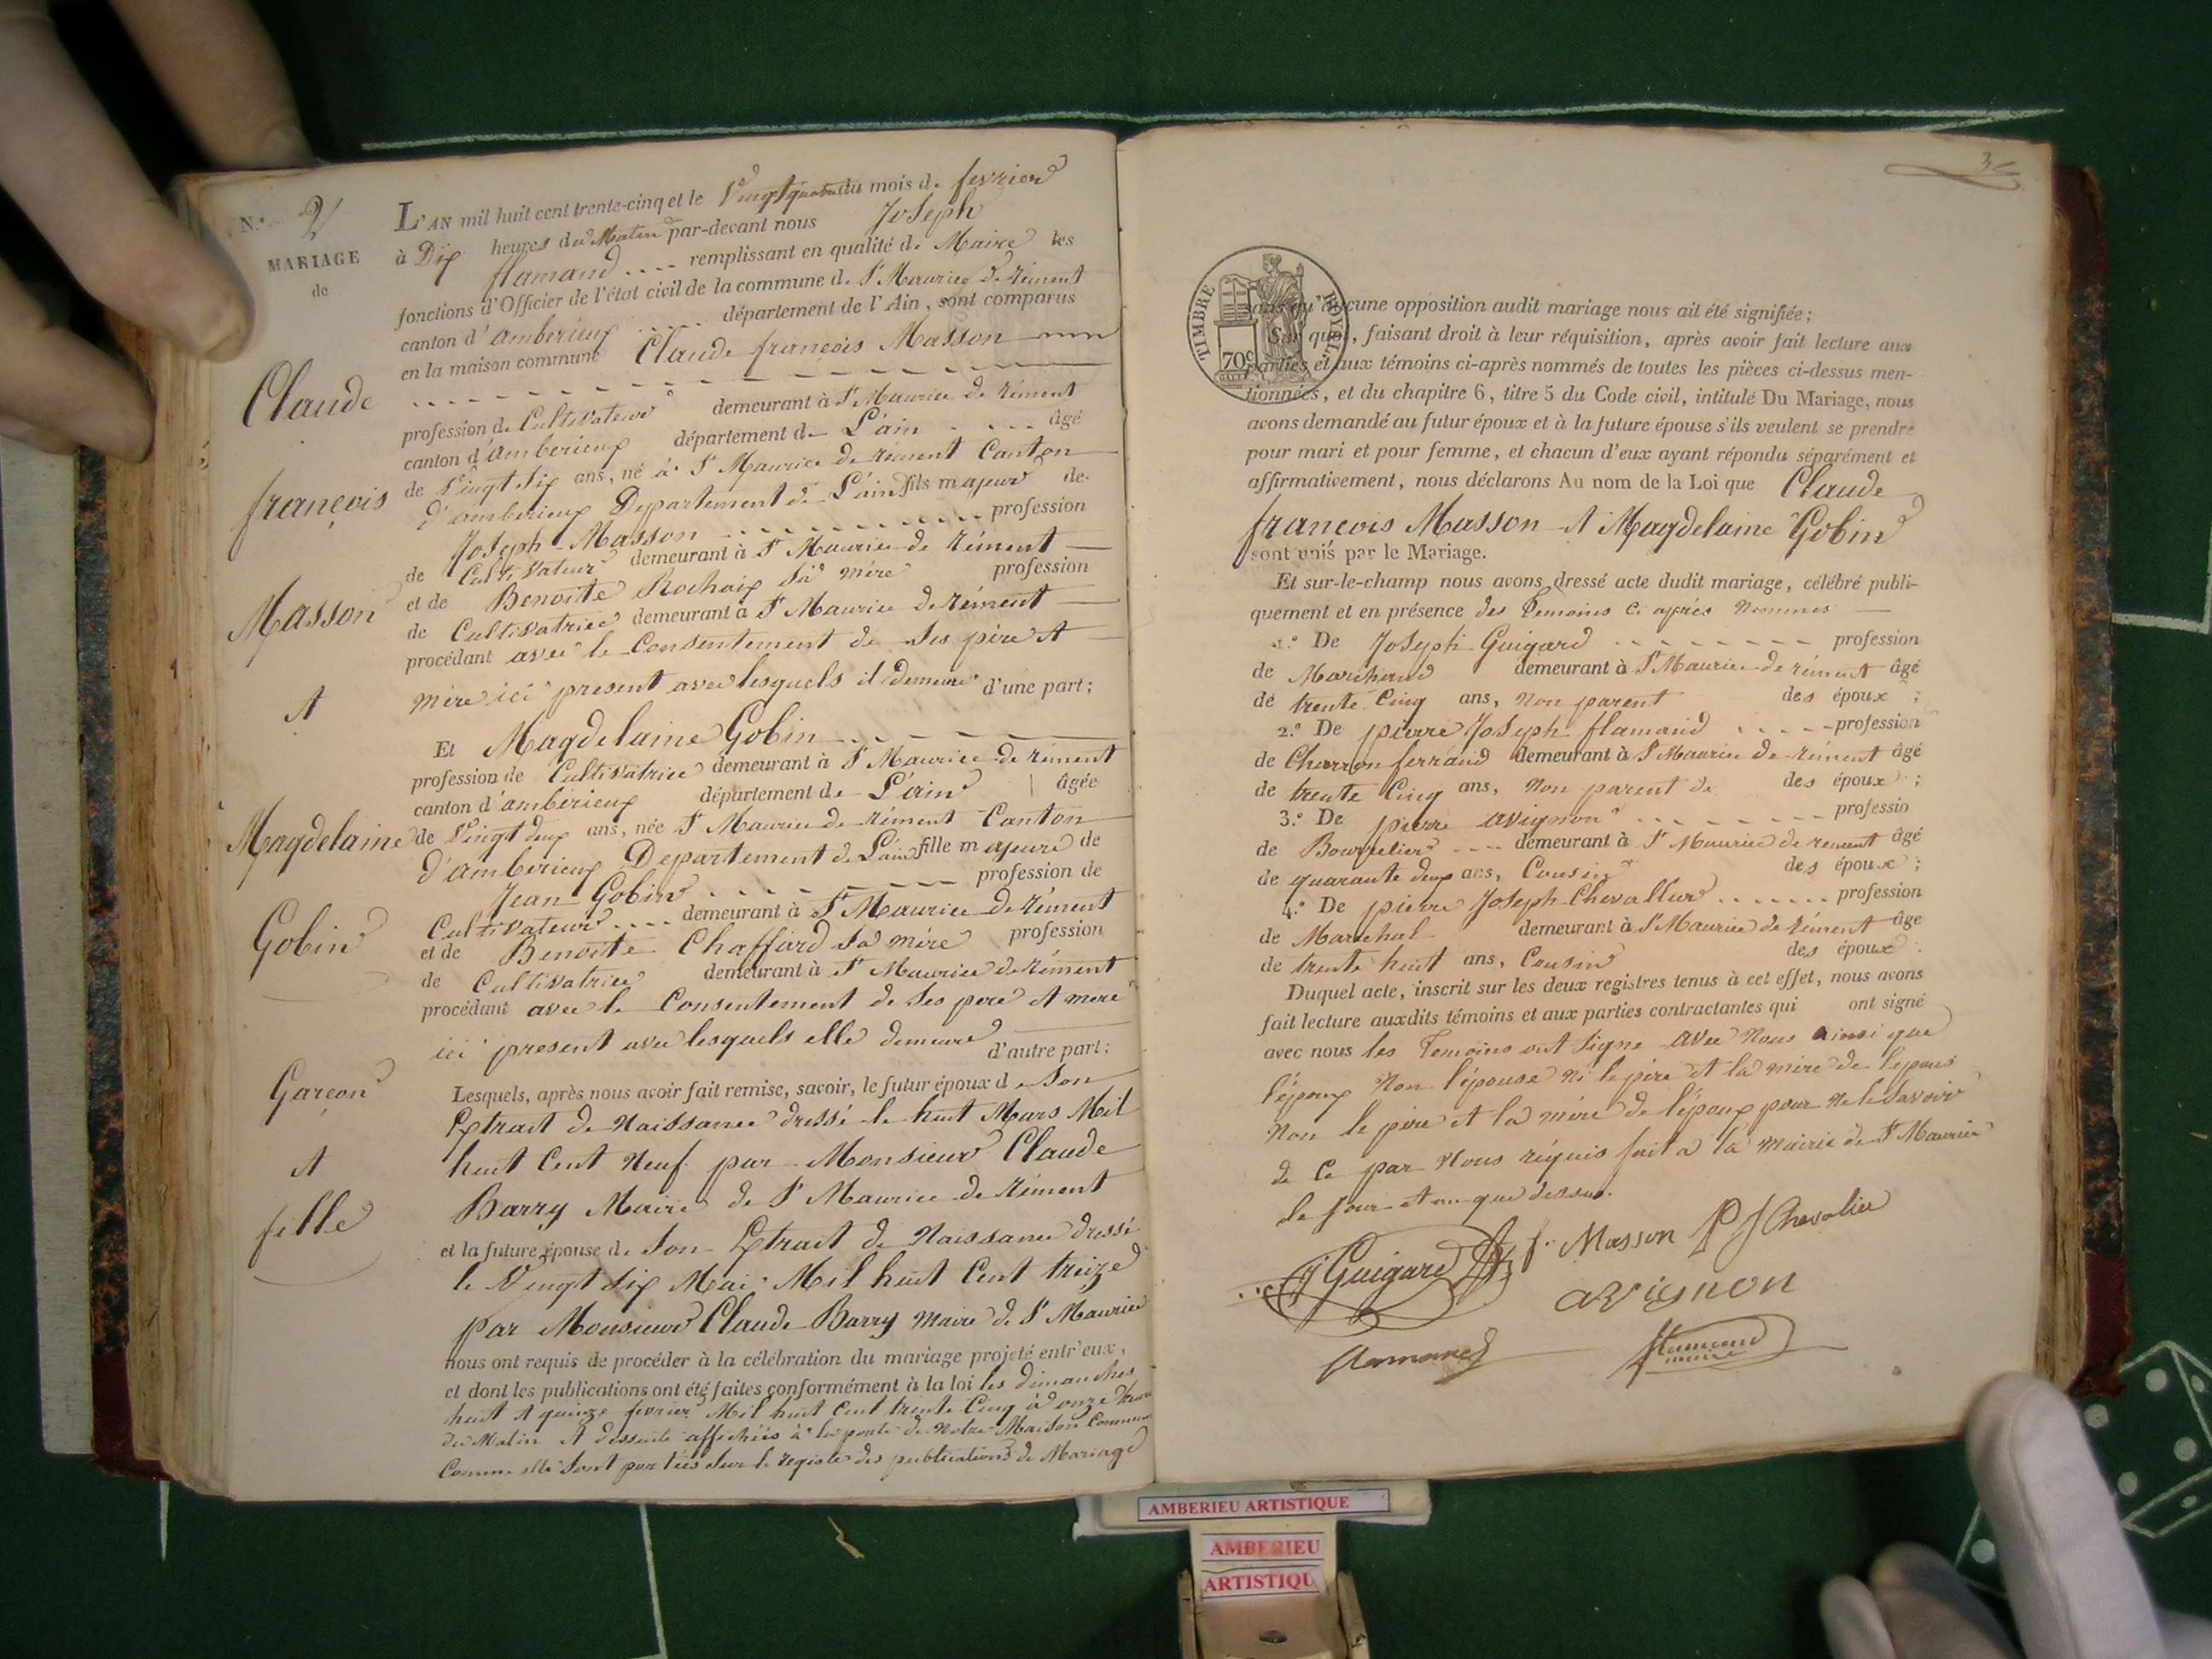 N.° 2
MARIAGE
de
Claude
françois
Masson
et
Magdelaine
Gobin
Garçon
et
fille
L'AN mil huit cent trente-cinq et le Vingt quatre du mois de fevrier
à Dix heures du Matin par-devant nous Joseph
flamand .... remplissant en qualité de Maire les
fonctions d'Officier de l'état civil de la commune de St Maurice de rément
canton d'amberieux .... département de l'Ain, sont comparus
en la maison commune Claude françois Masson
profession de Cultivateur demeurant à St Maurice de rément
canton d'amberieux département de L'ain .... âgé
de Vingt Six ans, né à St Maurice de rément Canton
d'amberieux Departement de L'ain fils majeur de
Joseph Masson .......... profession
de Cultivateur demeurant à St Maurice de rément
et de Benoite Rochaix Sa mère profession
de Cultivatrice demeurant à St Maurice de rément
procédant avec le Consentement de Ses père et
mère ici present avec lesquels il demeure d'une part;
Et Magdelaine Gobin
profession de Cultivatrice demeurant à St Maurice de rément
canton d'amberieux département de L'ain âgée
de Vingt deux ans, née St Maurice de rément Canton
d'amberieux Departement de L'ain fille majeure de
Jean Gobin ....... profession de
Cultivateur .... demeurant à St Maurice de rément
et de Benoite Chaffard Sa mère profession
de Cultivatrice demeurant à St Maurice de rément
procédant avec le Consentement de Ses pere et mere
ici present avec lesquels elle demeure d'autre part:
Lesquels, après nous avoir fait remise, savoir, le futur époux de Son
Extrait de Naissance dressé le huit Mars Mil
huit Cent Neuf par Monsieur Claude
Barry Maire de St Maurice de rément
et la future épouse de Son Extrait de Naissance dressé
le Vingt Six Mai Mil huit Cent treize
par Monsieur Claude Barry maire de St Maurice
nous ont requis de procéder à la célébration du mariage projeté entr'eux,
et dont les publications ont été faites conformément à la loi les dimanches
huit et quinze fevrier Mil huit Cent trente Cinq à onze heures
du Matin et dessuite affichées à la porte de Notre Maison Commune
Comme elle Sont portées Sur le registe des publications de Mariage
3
TIMBRE ROYAL
70c
sans qu'aucune opposition audit mariage nous ait été signifiée;
Sur quoi, faisant droit à leur réquisition, après avoir fait lecture aux
parties et aux témoins ci-après nommés de toutes les pièces ci-dessus men-
tionnées, et du chapitre 6, titre 5 du Code civil, intitulé Du Mariage, nous
avons demandé au futur époux et à la future épouse s'ils veulent se prendre
pour mari et pour femme, et chacun d'eux ayant répondu séparément et
affirmativement, nous déclarons Au nom de la Loi que Claude
francois Masson et Magdelaine Gobin
sont unis par le Mariage.
Et sur-le-champ nous avons dressé acte dudit mariage, célébré publi-
quement et en présence des temoins Ci après Nommés
1.° De Joseph Guigard ........ profession
de Marchand demeurant à St Maurice de rément âgé
de trente Cinq ans, Non parent des époux;
2.° De pierre Joseph flamand .... profession
de Charron ferrand demeurant à St Maurice de rément âgé
de trente Cinq ans, Non parent de des époux;
3.° De pierre avignon ........ professio
de Bourrelier .... demeurant à St Maurice de rément âgé
de quarante deux ans, Cousin des époux;
4.° De pierre Joseph Chevallier ....... profession
de Marechal demeurant à St Maurice de rément âge
de trente huit ans, Cousin des époux.
Duquel acte, inscrit sur les deux registres tenus à cet effet, nous avons
fait lecture auxdits témoins et aux parties contractantes qui ont signé
avec nous les Temoins ont Signe avec Nous ainsi que
l'époux Non l'épouse Ni le père et la mère de l'epous
Non le père et la mère de l'époux pour Ne le Savoir
de Ce par Nous réquis fait a la mairie de St Maurice
le Jour et an que dessus.
J Guigard f. Masson P J Chevalier
avignon
flamand flamand
maire
AMBERIEU ARTISTIQUE
AMBERIEU
ARTISTIQU